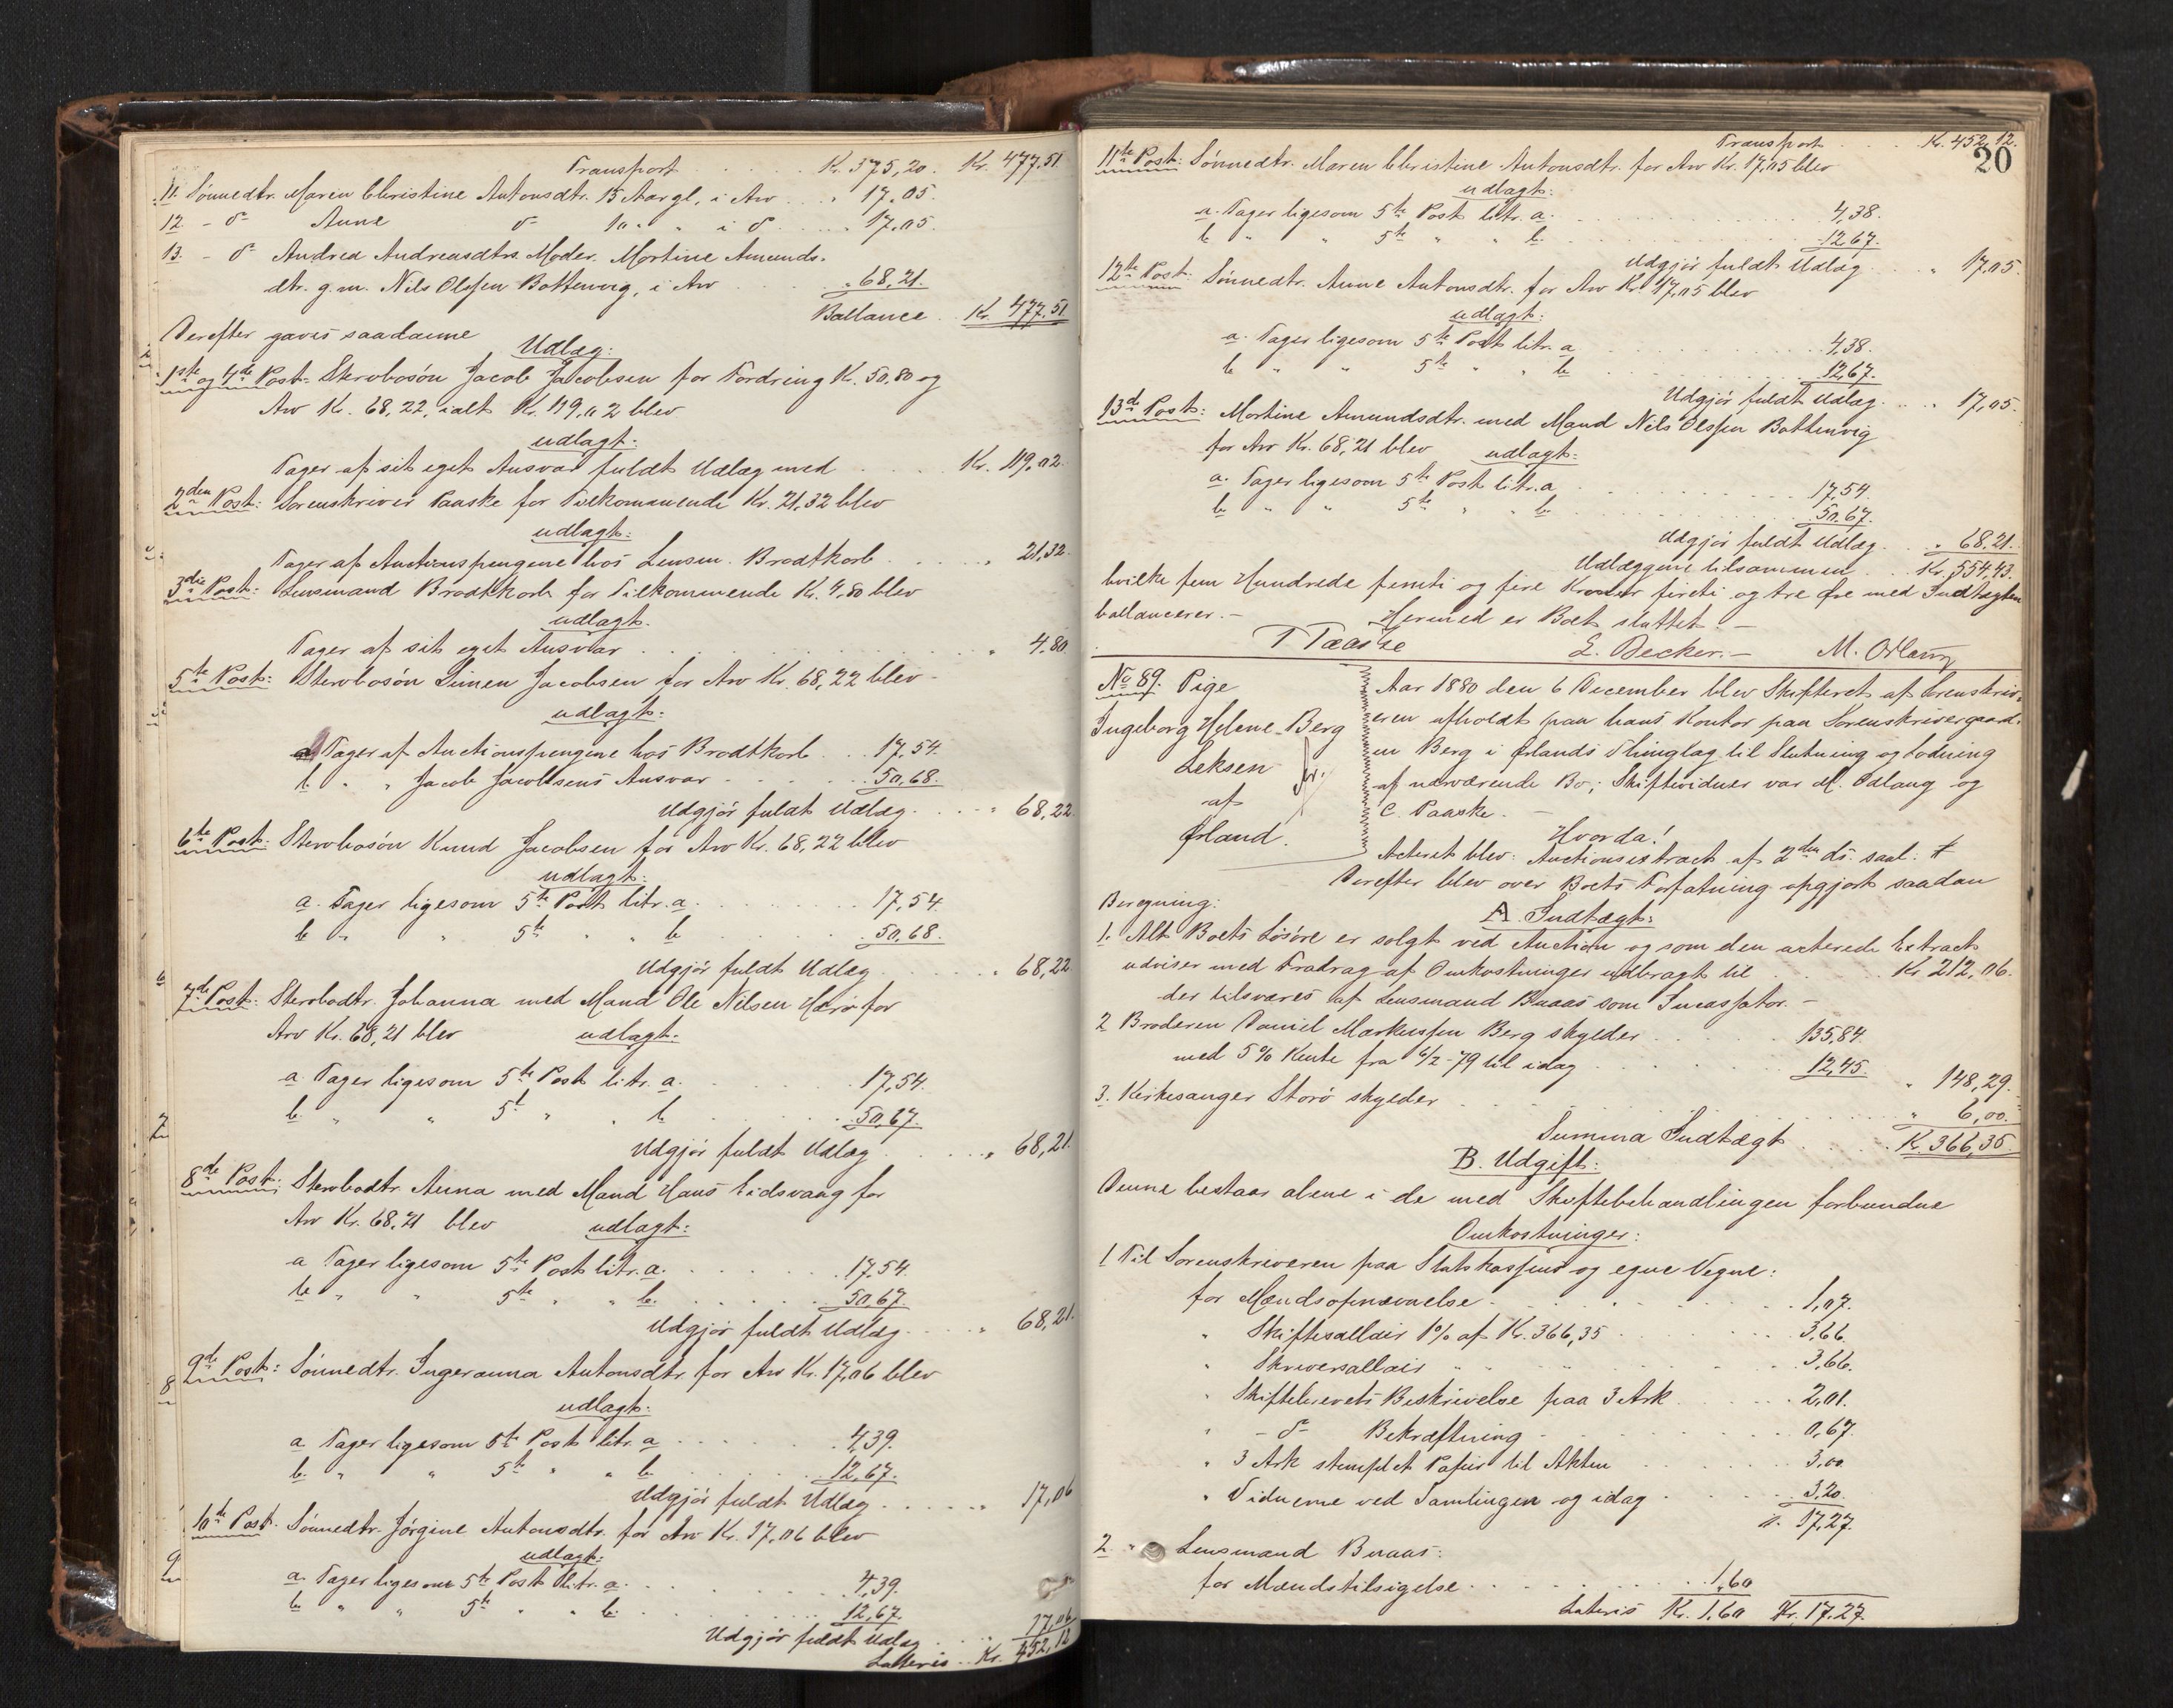 Transport . . . . . Kr. 375,20. Kr. 477,51
11. Sönnedtr. Maren Christine Antonsdtr. 15 Aar gl., i Arv . . . " 17,05.
12. - d° Anne d° 10 " " i d° . . . . " 17,05.
13. - d° Andrea Andreasdtrs Moder. Mortine Amunds-
dtr. g. m. Nils Olssen Bottenvig, i Arv . . . " 68,21.
Ballance . Kr. 477,51
Derefter gaves saadanne
Udlæg:
1ste og 4de Post: Stervbosön Jacob Jacobsen for Fordring Kr. 50,80 og
Arv Kr. 68,22, ialt Kr. 119,02 blev
udlagt:
Tager af sit eget Ansvar fuldt Udlæg med . . . . Kr. 119,02.
2den Post: Sorenskriver Paaske for Tilkommende Kr. 21,32 blev
udlagt:
Tager af Auctionspengene hos Lensm. Brodtkorb . . . . " 21,32.
3die Post: Lensmand Brodtkorb for Tilkommende Kr. 4,80 blev
udlagt.
Tager af sit eget Ansvar . . . . . . . . " 4,80.
5te Post: Stervbosön Simen Jacobsen for Arv Kr. 68,22 blev -
udlagt:
a. Tager af Auctionspengene hos Brodtkorb . . . 17,54.
b. " " Jacob Jacobsens Ansvar . . . . . 50,68.
Udgjör fuldt Udlæg . . . . " 68,22
6te Post: Stervbosön Knud Jacobsen for Arv Kr. 68,22 blev
udlagt:
a. Tager ligesom 5te Post litr. a. . . . . . 17,54.
b. " " 5te " " b. . . . . . 50,68.
Udgjör fuldt Udlæg . . . . " 68,22
7de Post: Stervbodtr. Johanna med Mand Ole Nilsen for
Arv Kr. 68,21 blev udlagt:
a. Tager ligesom 5te Post litr. a. . . . . . 17,54.
b. " " 5t " " b . . . . . 50,67.
Udgjör fuldt Udlæg . . . . " 68,21.
8de Post: Stervbodtr. Anna med Mand Hans Eidsvaag for
Arv Kr. 68,21 blev udlagt:
a Tager ligesom 5te Post litr. a. . . . . . 17,54.
b. " " 5te " " b. . . . . . 50,67.
Udgjör fuldt Udlæg . . . . " 68,21.
9de Post: Sönnedtr. Ingeranna Antonsdtr. for Arv Kr. 17,06 blev
udlagt:
a. Tager ligesom 5te Post litr. a . . . . . 4,39.
b. " " 5te " " b . . . . . 12,67.
Udgjör fuldt Udlæg . . . . " 17,06
10de Post: Sönnedtr. Jörgine Antonsdtr. for Arv Kr. 17,06 blev
udlagt:
a. Tager ligesom 5te Post litr. a. . . . . . 4,39.
b " " 5te " " b. . . . . . 12,67.
Udgjör fuldt Udlæg . . . . 17,06
Lateris . . Kr. 452,12
20
Transport . . . . Kr. 452,12.
11te Post: Sönnedtr. Maren Christine Antonsdtr. for Arv Kr. 17,05 blev
udlagt:
a. Tager ligesom 5te Post litr. a. . . . . . 4,38.
b " " 5te " " b. . . . . . 12,67.
Udgjör fuldt Udlæg . . . " 17,05.
12te Post: Sönnedtr. Anne Antonsdtr. for Arv Kr. 17,05 blev
udlagt:
a. Tager ligesom 5te Post litr. a . . . . . 4,38.
b " " 5te " " b . . . . . 12,67.
Udgjör fuldt Udlæg . . . " 17,05.
13de Post: Mortine Amundsdtr. med Mand Nils Olssen Bottenvig
for Arv Kr. 68,21 blev udlagt:
a. Tager ligesom 5te Post litr. a . . . . . 17,54.
b " " 5te " " b . . . . . 50,67.
Udgjör fuldt Udlæg . . . " 68,21.
Udlæggene tilsammen . . . Kr. 554,43.
hvilke fem Hundrede femti og fire Kroner firti og tre Øre med Indtægten
ballancerer. - Hermed er Boet sluttet. -
T Paaske E. Decker. - M. Odlaug
No 89. Pige
Ingeborg Helene Berg
Leksen
af
Ørland.
Aar 1880 den 6 December blev Skifteret af Sorenskriv-
eren afholdt paa hans Kontor paa Sorenskrivergaard-
en Berg i Ørlands Thinglag til Slutning og Lodning
af nærværende Bo; Skiftevidner var M. Odlaug og
C. Paaske. -
Hvorda!
Acteret blev: Auctionsextract af 2den ds. saal: #
Derefter blev over Boets Forfatning opgjort saadan
Beregning:
A. Indtægt:
1. Alt Boets Lösöre er solgt ved Auction og som den acterede Extract
udviser med Fradrag af Omkostninger udbragt til . . . . Kr. 212,06.
der tilsvares af Lensmand Buaas som Incassator. -
2 Broderen Daniel Markussen Berg skylder . . . . 135,84.
med 5% Rente fra 6/2-79 til idag . . . . . 12,45.
" 148,29.
3. Kirkesanger Storö skylder . . . . . . . " 6,00.
Summa Indtægt . . . . K. 366,35.
B. Udgift:
Denne bestaar alene i de med Skiftebehandlingen forbundne
Omkostninger:
1 Til Sorenskriveren paa Statskassens og egne Vegne:
for Mændsopnævnelse . . . . . . . 1,07.
" Skiftesallair 1% af Kr. 366,35 . . . . . 3,66.
" Skriversallair " " . . . . . 3,66.
" Skiftebrevets Beskrivelse paa 3 Ark . . . . . 2,01.
" - d° - Bekræftning . . . . . 0,67.
" 3 Ark stemplet Papiir til Akten . . . . . 3,00
" Vidnerne ved Samlingen og idag . . . . . 3,20.
17,27.
2. " Lensmand Buaas:
for Mændstilsigelse . . . . . . 1,60
Lateris Kr. 1,60 Kr. 17,27